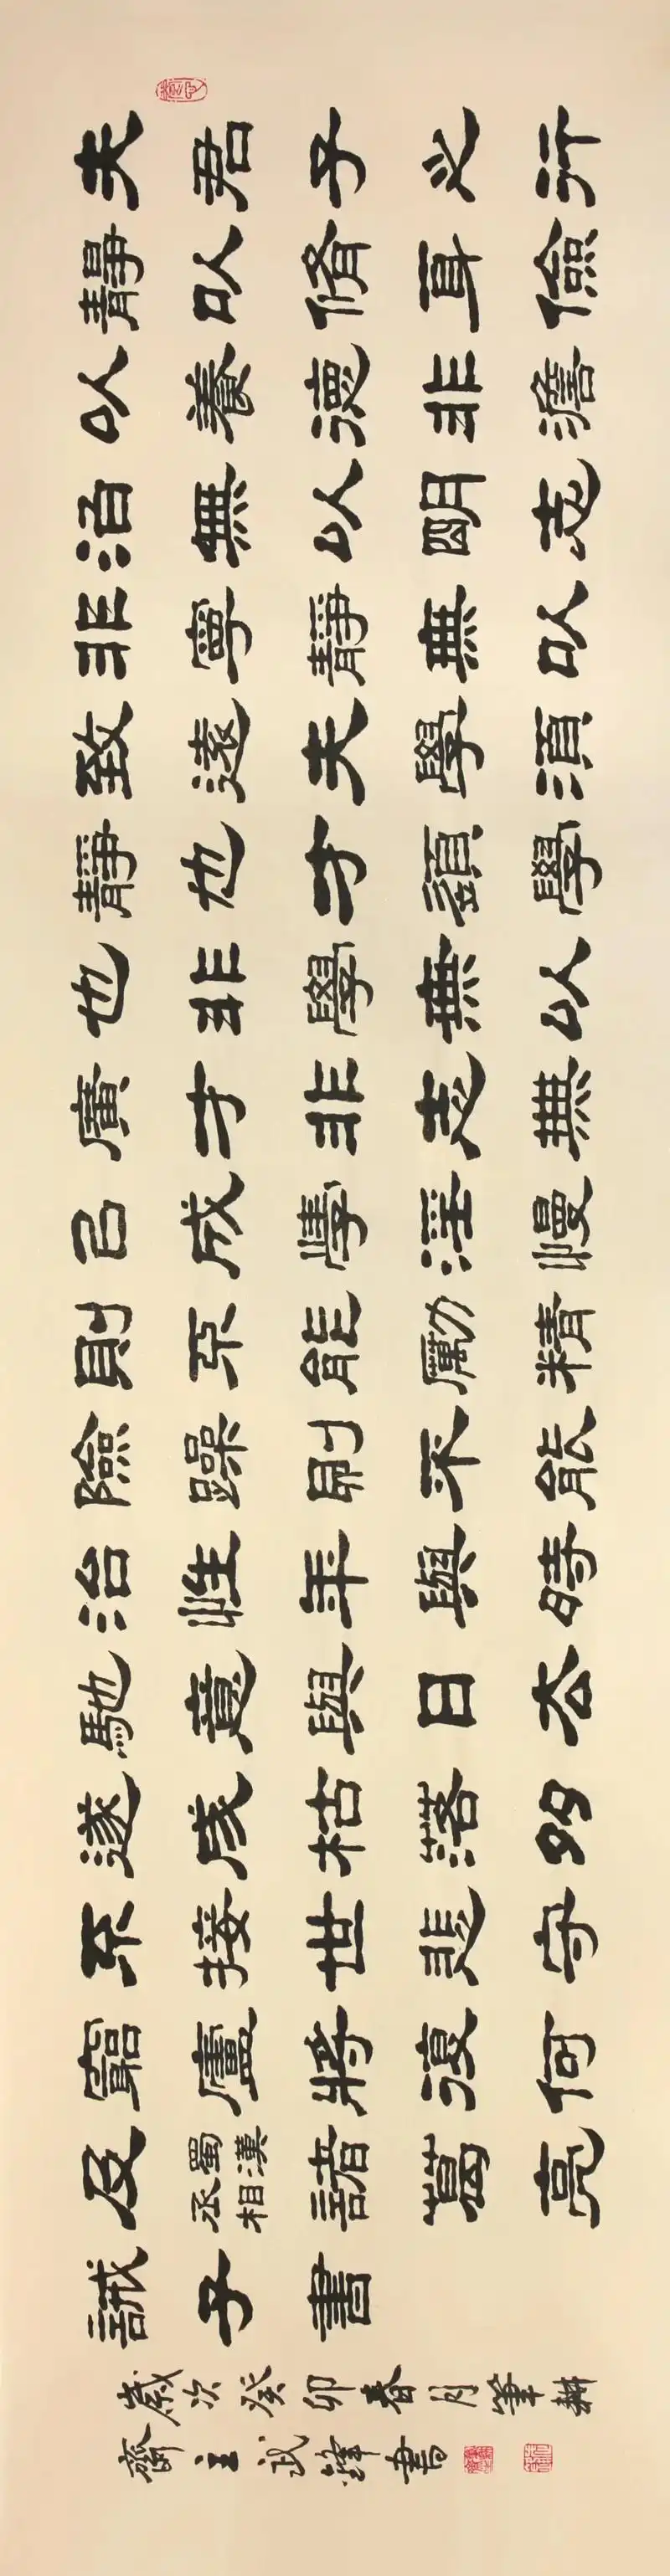 夫君子之行
靜以脩身儉
以養德非澹
泊無以明志
非寧靜無以
致遠夫學須
靜也才須學
也非學無以
廣才非志無
㠯成學淫慢
則不能勵精
險躁則不能
治性年與時
馳意與日去
遂成枯落多
不接世悲守
窮廬將復何
及蜀漢丞相諸葛亮
誡子書
歲次癸卯春月筆耕
齋主武鋒書